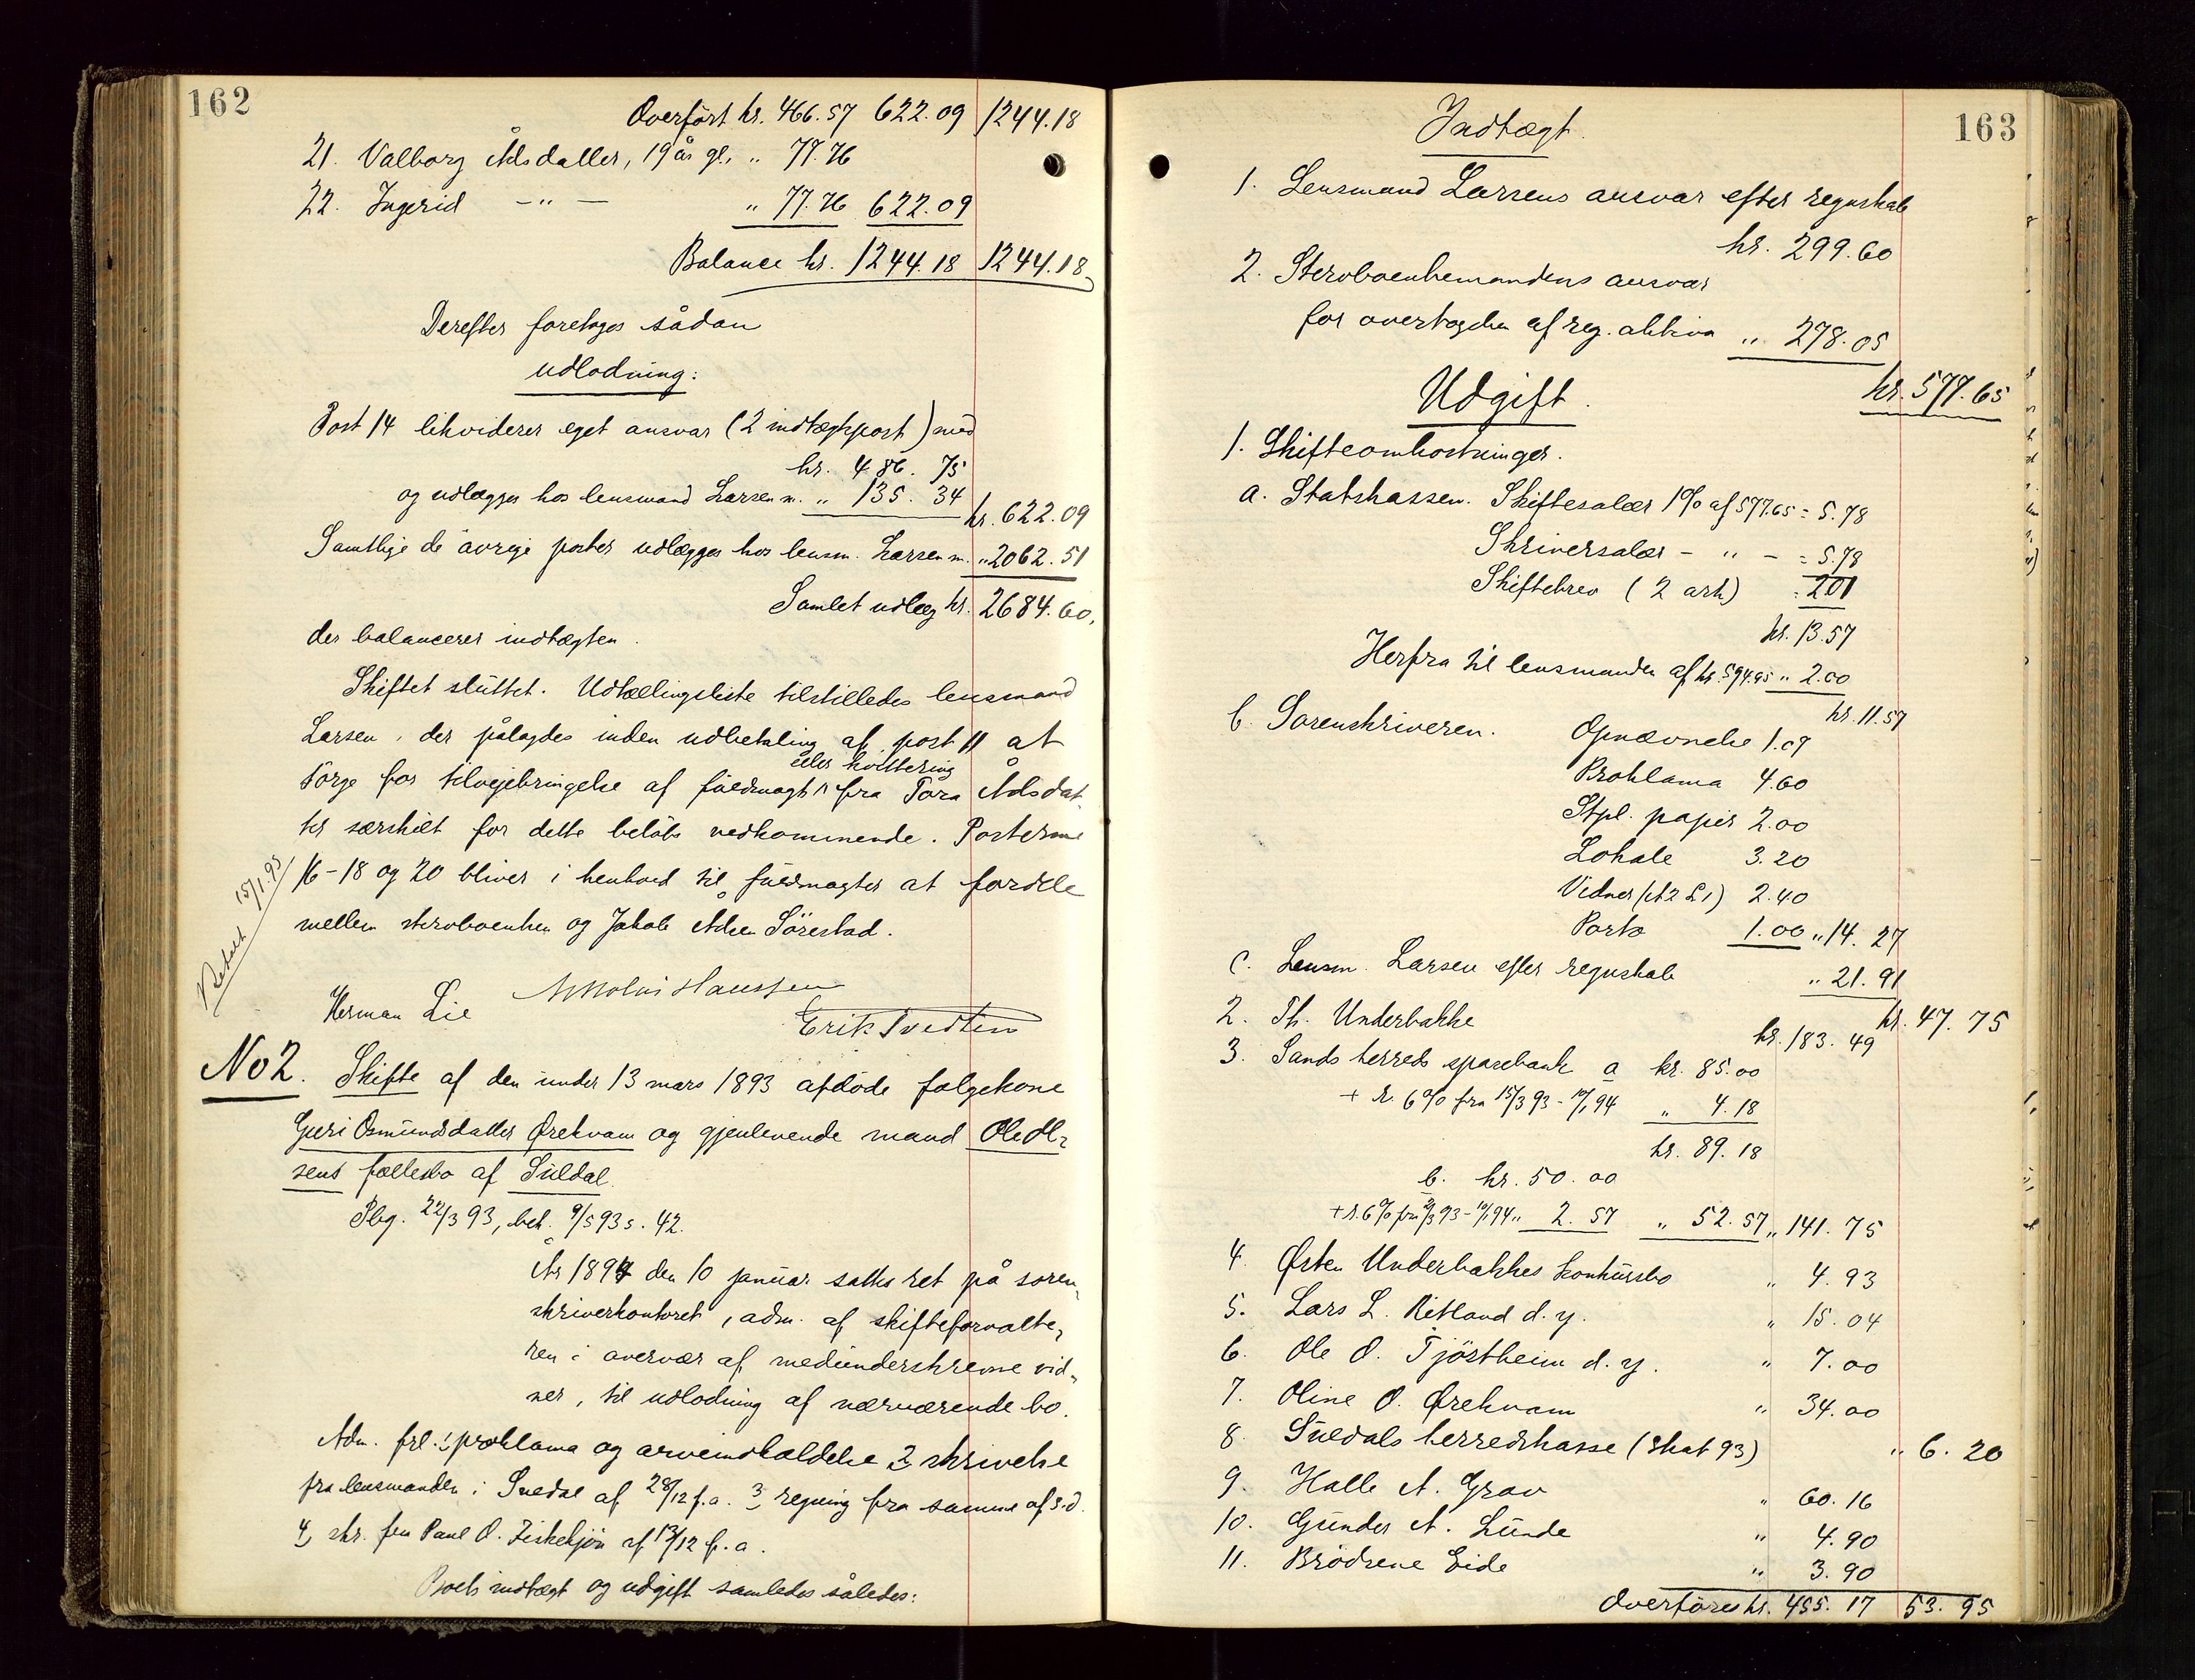 162
Overført kr. 466.57 622.09 1244.18
21. Valborg Adsdatter, 19 år gl. „ 77.76
22. Ingerid - „ - „ 77.76 622.09
Balance kr. 1244.18 1244.18
Derefter foretoges sådan
udlodning:
Post 14 likviderer eget ansvar (2 indtægtspost) med
kr. 486.75
og udlægges hos lensmand Larsen m. „ 135.34
kr. 622.09
Samtlige de øvrige poster udlægges hos lensm. Larsen m. „ 2062.51
Samlet udlæg kr. 2684.60,
der balancerer indtægten.
Skiftet sluttet. Udtællingsliste tilstilledes lensmand
Larsen, der pålagdes inden udbetaling af post 11 at
eller kvittering
sørge for tilvejebringelse af fuldmagt fra Tora Adsdat-
ter særskilt for dette beløbs vedkommende. Posterne
16-18 og 20 bliver i henhold til fuldmagter at fordele
mellem stervboenken og Jakob Adsen Sørestad.
Betalt 15/1.95
Herman Lie
Erik Tvedten
No 2. Skifte af den under 13 mars 1893 afdøde følgekone
Guri Osmundsdatter Ørekvam og gjenlevende mand Ole Ol-
sens fællesbo af Suldal.
Pbg. 22/3 93, beh. 9/5 93 s. 42.
År 1894 den 10 januar sattes ret på soren-
skriverkontoret, adm. af skifteforvalte-
ren i overvær af medunderskrevne vid-
ner, til udlodning af nærværende bo.
Adm. frl. 1, proklama og arveindkaldelse 2, skrivelse
fra lensmanden i Suldal af 28/12 f.a. 3, regning fra samme af s.d.
4, skr. fra Paul O. Fiskekjøn af 13/12 f.a.
Boets indtægt og udgift samledes således:
163
Indtægt.
1. Lensmand Larsens ansvar efter regnskab
kr. 299.60
2. Stervboenkemandens ansvar
for overtagelsen af reg. aktiva „ 278.05
kr. 577.65
Udgift.
1. Skifteomkostninger.
a. Statskassen. Skiftesalær 1% af 577.65 = 5.78
Skriversalær - „ - = 5.78
Skiftebrev (2 ark) = 2.01
kr. 13.57
Herfra til lensmanden af kr. 594.95 „ 2.00
kr. 11.57
b. Sorenskriveren. Opnævnelse 1.07
Proklama 4.60
Stpl. papir 2.00
Lokale 3.20
Vidner 2.40
Porto 1.00 „ 14.27
c. Lensm. Larsen efter regnskab „ 21.91
kr. 47.75
2. Th. Underbakke kr. 183.49
3. Sands herreds sparebank a kr. 85.00
+ r. 6% fra 15/3 93 - 10/1 94 „ 4.18
kr. 89.18
b. kr. 50.00
+ r. 6% fra 2/3 93 - 10/1 94 „ 2.57 „ 52.57 „ 141.75
4. Østen Underbakkes konkursbo „ 4.93
5. Lars L. Ritland d.y. „ 15.04
6. Ole O. Tjøstheim d.y. „ 7.00
7. Oline O. Ørekvam „ 34.00
8. Suldals herredskasse (skat 93) „ 6.20
9. Halle A. Grov „ 60.16
10. Gunder A. Lunde „ 4.90
11. Brødrene Eide „ 3.90
Overføres kr. 455.17 53.95